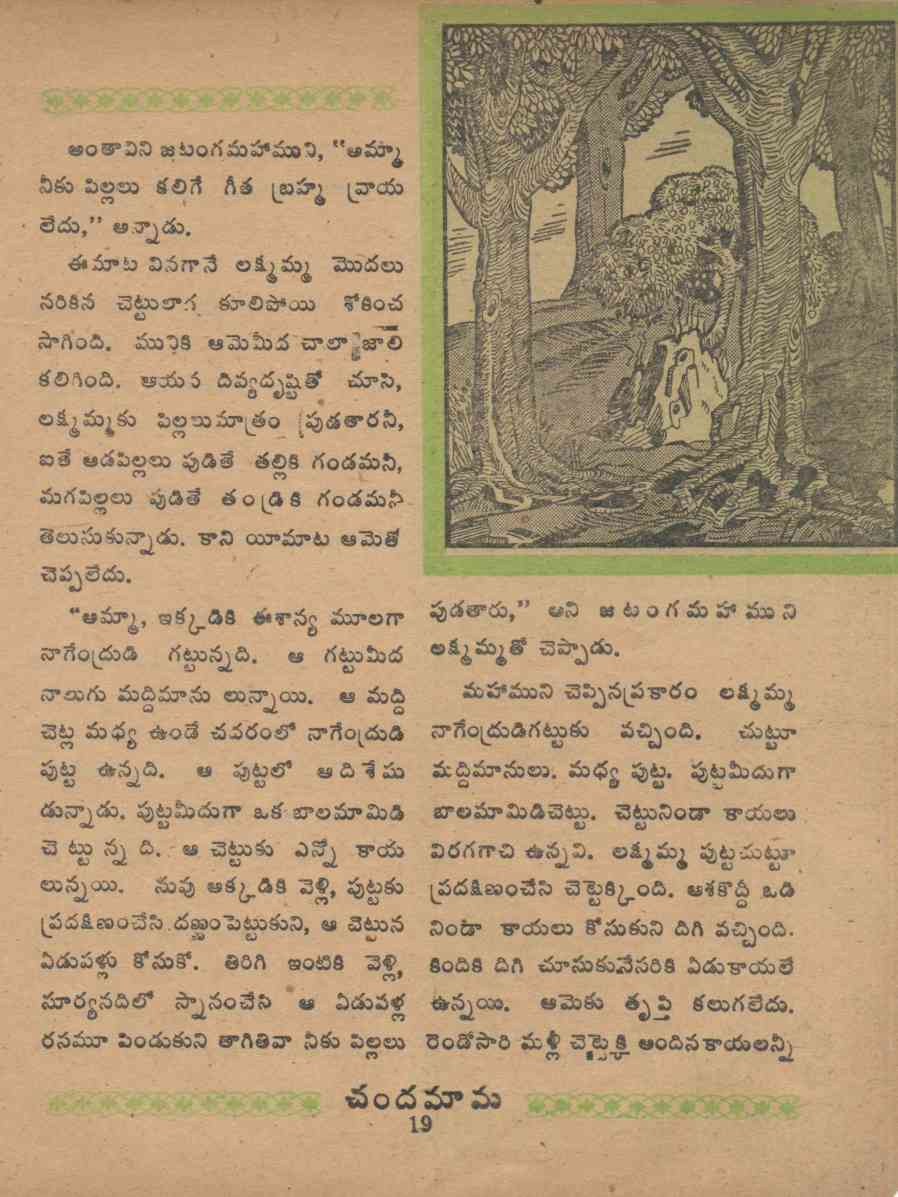 అంతావిని జటంగమహాముని, "అమ్మా
నీకు పిల్లలు కలిగే గీత బ్రహ్మ వ్రాయ
లేదు," అన్నాడు.
ఈమాట వినగానే లక్ష్మమ్మ మొదలు
నరికిన చెట్టులాగ కూలిపోయి శోకించ
సాగింది. మునికి ఆమెమీద చాలా జాలి
కలిగింది. ఆయన దివ్యదృష్టితో చూసి,
లక్ష్మమ్మకు పిల్లలుమాత్రం పుడతారనీ,
ఐతే ఆడపిల్లలు పుడితే తల్లికి గండమనీ,
మగపిల్లలు పుడితే తండ్రికి గండమనీ
తెలుసుకున్నాడు. కాని యీమాట ఆమెతో
చెప్పలేదు.
"అమ్మా, ఇక్కడికి ఈశాన్య మూలగా
నాగేంద్రుడి గట్టున్నది. ఆ గట్టుమీద
నాలుగు మద్దిమాను లున్నాయి. ఆ మద్ది
చెట్ల మధ్య ఉండే చవరంలో నాగేంద్రుడి
పుట్ట ఉన్నది. ఆ పుట్టలో ఆదిశేషు
డున్నాడు. పుట్టమీదుగా ఒక బాలమామిడి
చెట్టున్నది. ఆ చెట్టుకు ఎన్నో కాయ
లున్నయి. నువు అక్కడికి వెళ్లి, పుట్టకు
ప్రదక్షిణంచేసి దణ్ణంపెట్టుకుని, ఆ చెట్టున
ఏడుపళ్లు కోసుకో. తిరిగి ఇంటికి వెళ్లి,
సూర్యనదిలో స్నానంచేసి ఆ ఏడుపళ్ల
రసమూ పిండుకుని తాగితివా నీకు పిల్లలు
పుడతారు," అని జటంగమహాముని
లక్ష్మమ్మతో చెప్పాడు.
మహాముని చెప్పినప్రకారం లక్ష్మమ్మ
నాగేంద్రుడిగట్టుకు వచ్చింది. చుట్టూ
మద్దిమానులు. మధ్య పుట్ట. పుట్టమీదుగా
బాలమామిడిచెట్టు. చెట్టునిండా కాయలు
విరగగాచి ఉన్నవి. లక్ష్మమ్మ పుట్టచుట్టూ
ప్రదక్షిణంచేసి చెట్టెక్కింది. ఆశకొద్దీ ఒడి
నిండా కాయలు కోసుకుని దిగి వచ్చింది.
కిందికి దిగి చూసుకునేసరికి ఏడుకాయలే
ఉన్నయి. ఆమెకు తృప్తి కలుగలేదు.
రెండోసారి మళ్లీ చెట్టెక్కి అందినకాయలన్నీ
చందమామ
19